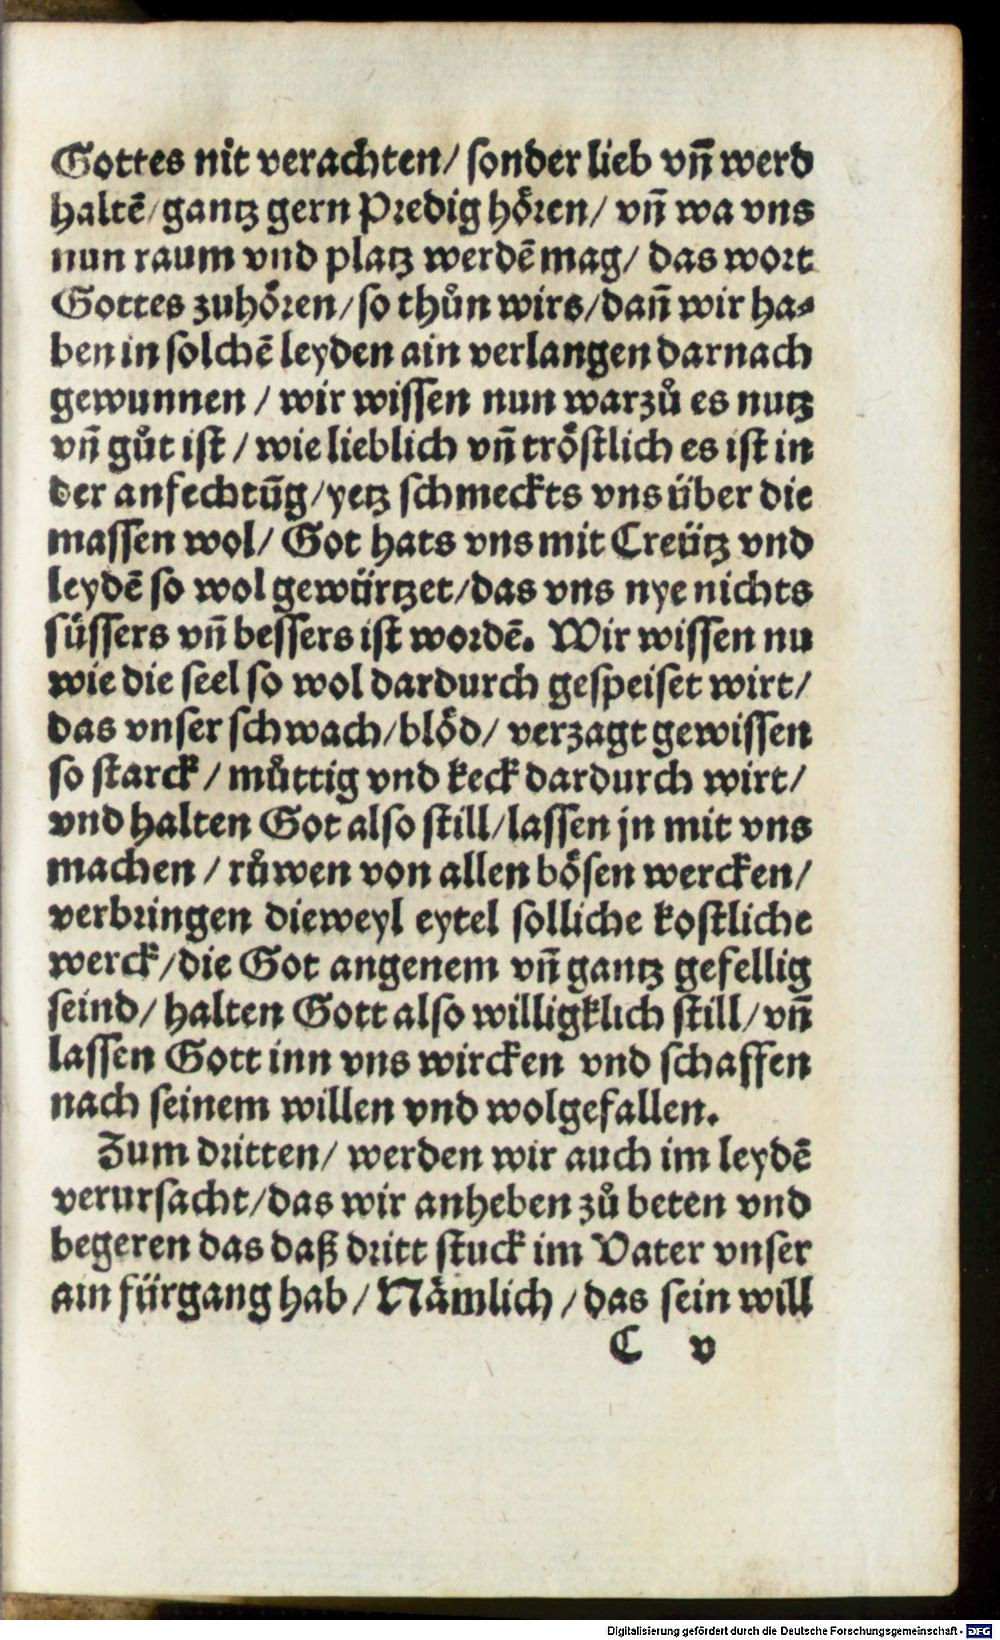 Gottes nit verachten/ sonder lieb vñ werd
haltē/ gantz gern Predig hoͤren/ vñ wa vns
nun raum vnd platz werdē mag/ das wort
Gottes zuhoͤren/ so thůn wirs/ dañ wir ha⸗
ben in solchē leyden ain verlangen darnach
gewunnen/ wir wissen nun warzů es nutz
vñ gůt ist/ wie lieblich vñ troͤstlich es ist in
der anfechtūg/ yetz schmeckts vns über die
massen wol/ Got hats vns mit Creütz vnd
leydē so wol gewürtzet/ das vns nye nichts
süssers vñ bessers ist wordē. Wir wissen nu
wie die seel so wol dardurch gespeiset wirt/
das vnser schwach/ bloͤd/ verzagt gewissen
so starck/ můttig vnd keck dardurch wirt/
vnd halten Got also still/ lassen jn mit vns
machen/ růwen von allen boͤsen wercken/
verbringen dieweyl eytel solliche kostliche
werck/ die Got angenem vñ gantz gefellig
seind/ halten Gott also willigklich still/ vñ
lassen Gott inn vns wircken vnd schaffen
nach seinem willen vnd wolgefallen.
Zum dritten/ werden wir auch im leydē
verursacht/ das wir anheben zů beten vnd
begeren das daß dritt stuck im Vater vnser
ain fürgang hab/ Naͤmlich/ das sein will
C v
Digitalisierung gefördert durch die Deutsche Forschungsgemeinschaft - DFG